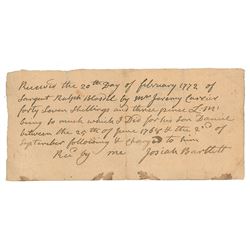 Received the 20th Day of february 1772 of
Sargent Ralph Blasdel by mr Jeremy Currier
forty Seven Shillings and three pence L:M:
being so much which I Did for his son Daniel
between the 25th of june 1768 & the 2nd of
September following & charged to him
Recd by me Josiah Bartlett